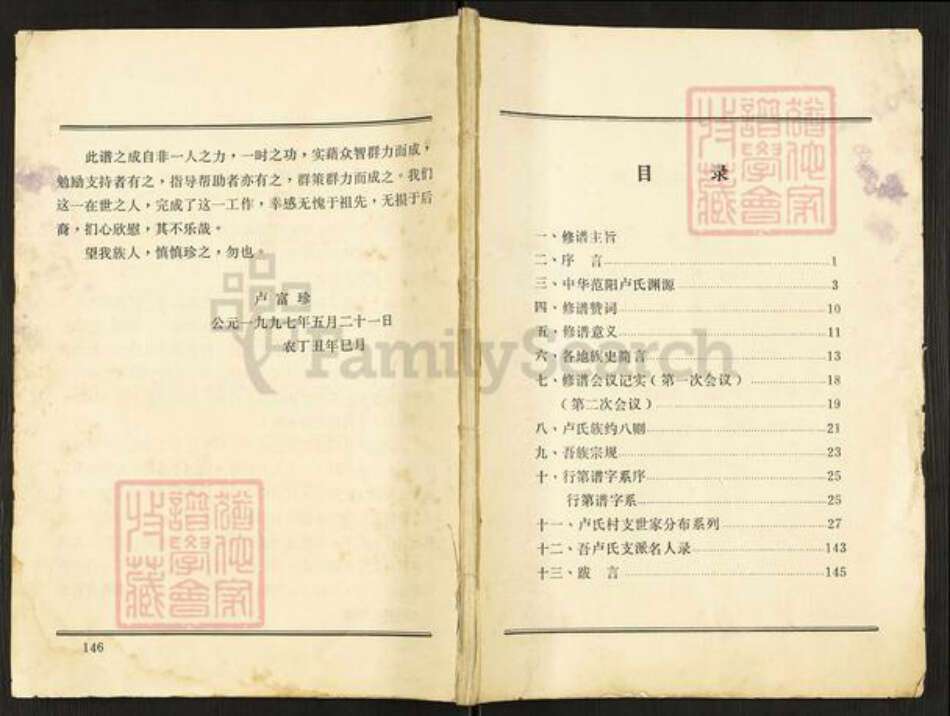 此谱之成自非一人之力，一时之功，实藉众智群力而成，
勉励支持者有之，指导帮助者亦有之，群策群力而成之。我们
这一在世之人，完成了这一工作，幸感无愧于祖先，无损于后
裔，扪心欣慰，其不乐哉。
望我族人，慎慎珍之，勿也。
卢富珍
公元一九九七年五月二十一日
农丁丑年巳月
146
目 录
一、修谱主旨
二、序 言 1
三、中华范阳卢氏渊源 3
四、修谱赞词 10
五、修谱意义 11
六、各地族史简言 13
七、修谱会议记实（第一次会议） 18
（第二次会议） 19
八、卢氏族约八则 21
九、吾族宗规 23
十、行第谱字系序 25
行第谱字系 25
十一、卢氏村支世家分布系列 27
十二、吾卢氏支派名人录 143
十三、跋 言 145
FamilySearch